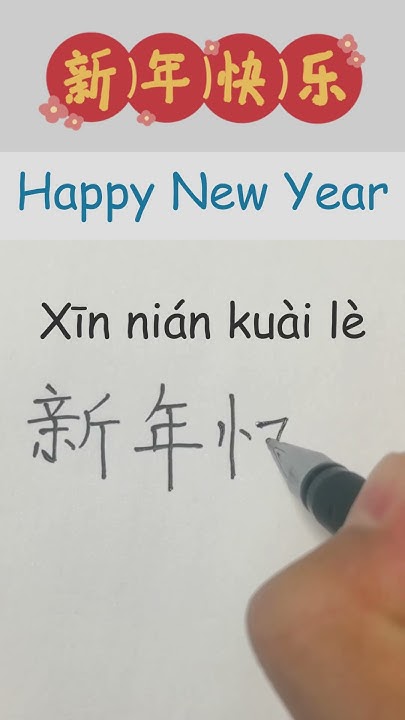 新年快乐
Happy New Year
Xīn nián kuài lè
新年